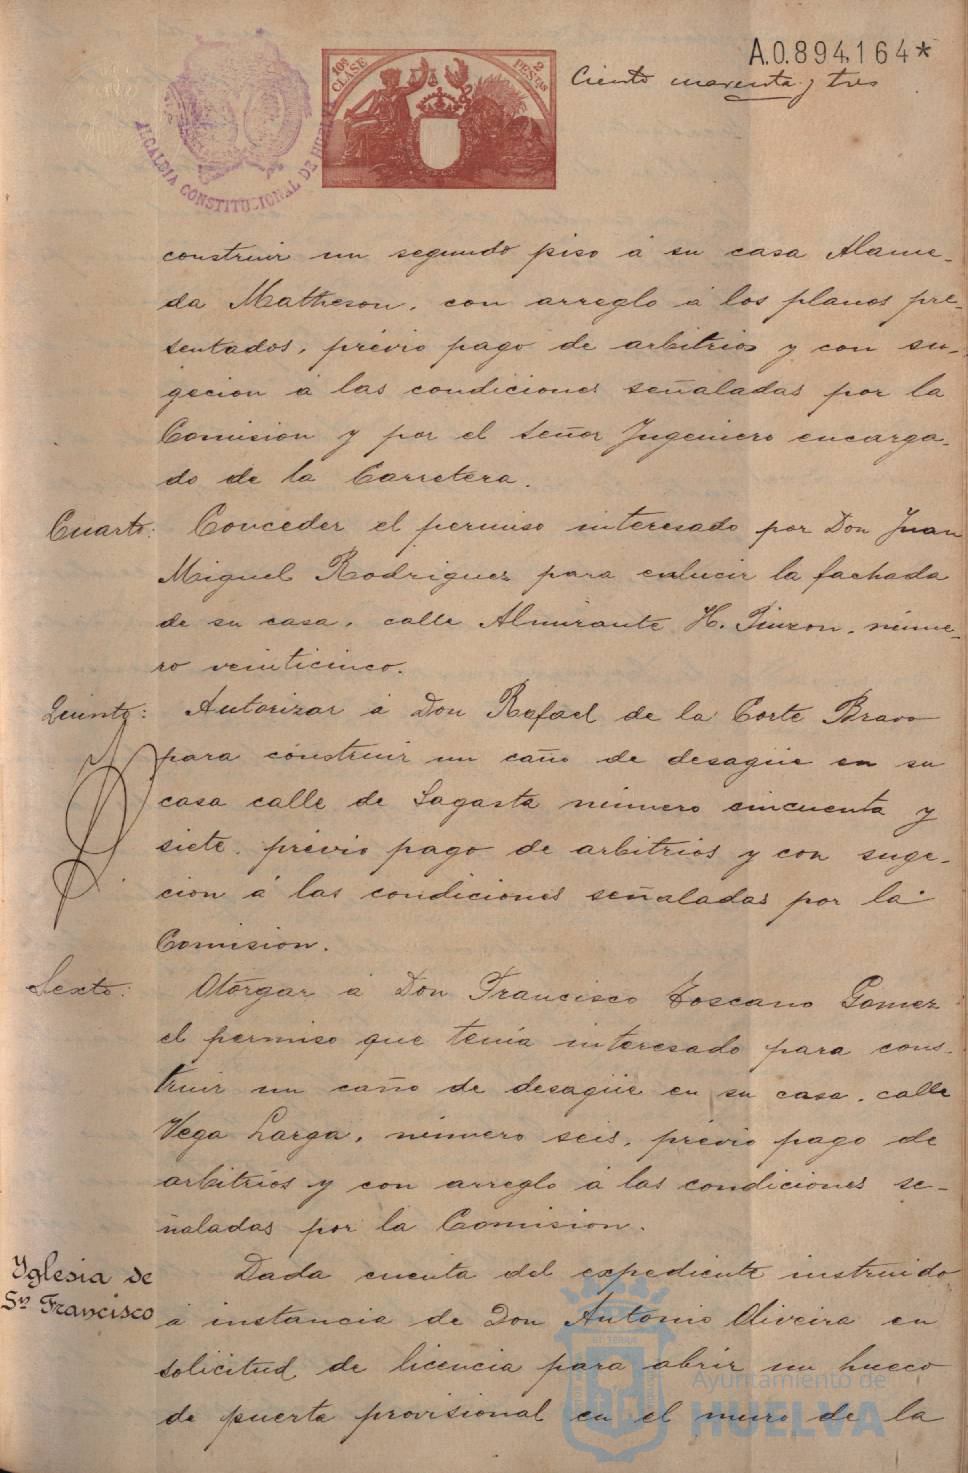 A.0.894,164*
10ª CLASE
2 PESETAS
Ciento noventa y tres
ALCALDIA CONSTITUCIONAL DE HUELVA
construir un segundo piso á su casa Alame-
da Matheson, con arreglo á los planos pre-
sentados, prévio pago de arbitrios y con su-
gecion á las condiciones señaladas por la
Comision y por el señor Ingeniero encarga-
do de la Carretera.
Cuarto: Conceder el permiso interesado por Don Juan
Miguel Rodriguez para enlucir la fachada
de su casa, calle Almirante H. Pinzon, núme-
ro veinticinco.
Quinto: Autorizar á Don Rafael de la Corte Bravo
para construir un caño de desagüe en su
casa calle de Sagasta número cincuenta y
siete, prévio pago de arbitrios y con suge-
cion á las condiciones señaladas por la
Comision.
Sexto: Otorgar á Don Francisco Toscano Gomez
el permiso que tenia interesado para cons-
truir un caño de desagüe en su casa, calle
Vega Larga, número seis, prévio pago de
arbitrios y con arreglo á las condiciones se-
ñaladas por la Comision.
Yglesia de Sn Francisco
Dada cuenta del expediente instruido
á instancia de Don Antonio Oliveira en
solicitud de licencia para abrir un hueco
de puerta provisional en el muro de la
Ayuntamiento de
HUELVA